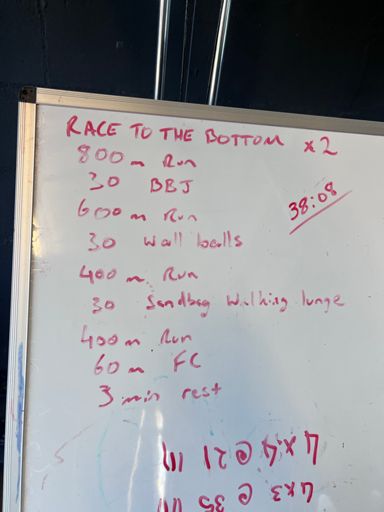 RACE TO THE BOTTOM x2
800m Run
30 BBJ
38:08
600m Run
30 Wall balls
400m Run
30 Sandbag Walking lunge
400m Run
60m FC
3 min rest
4 x 4 @ 21
4x3 @ 35